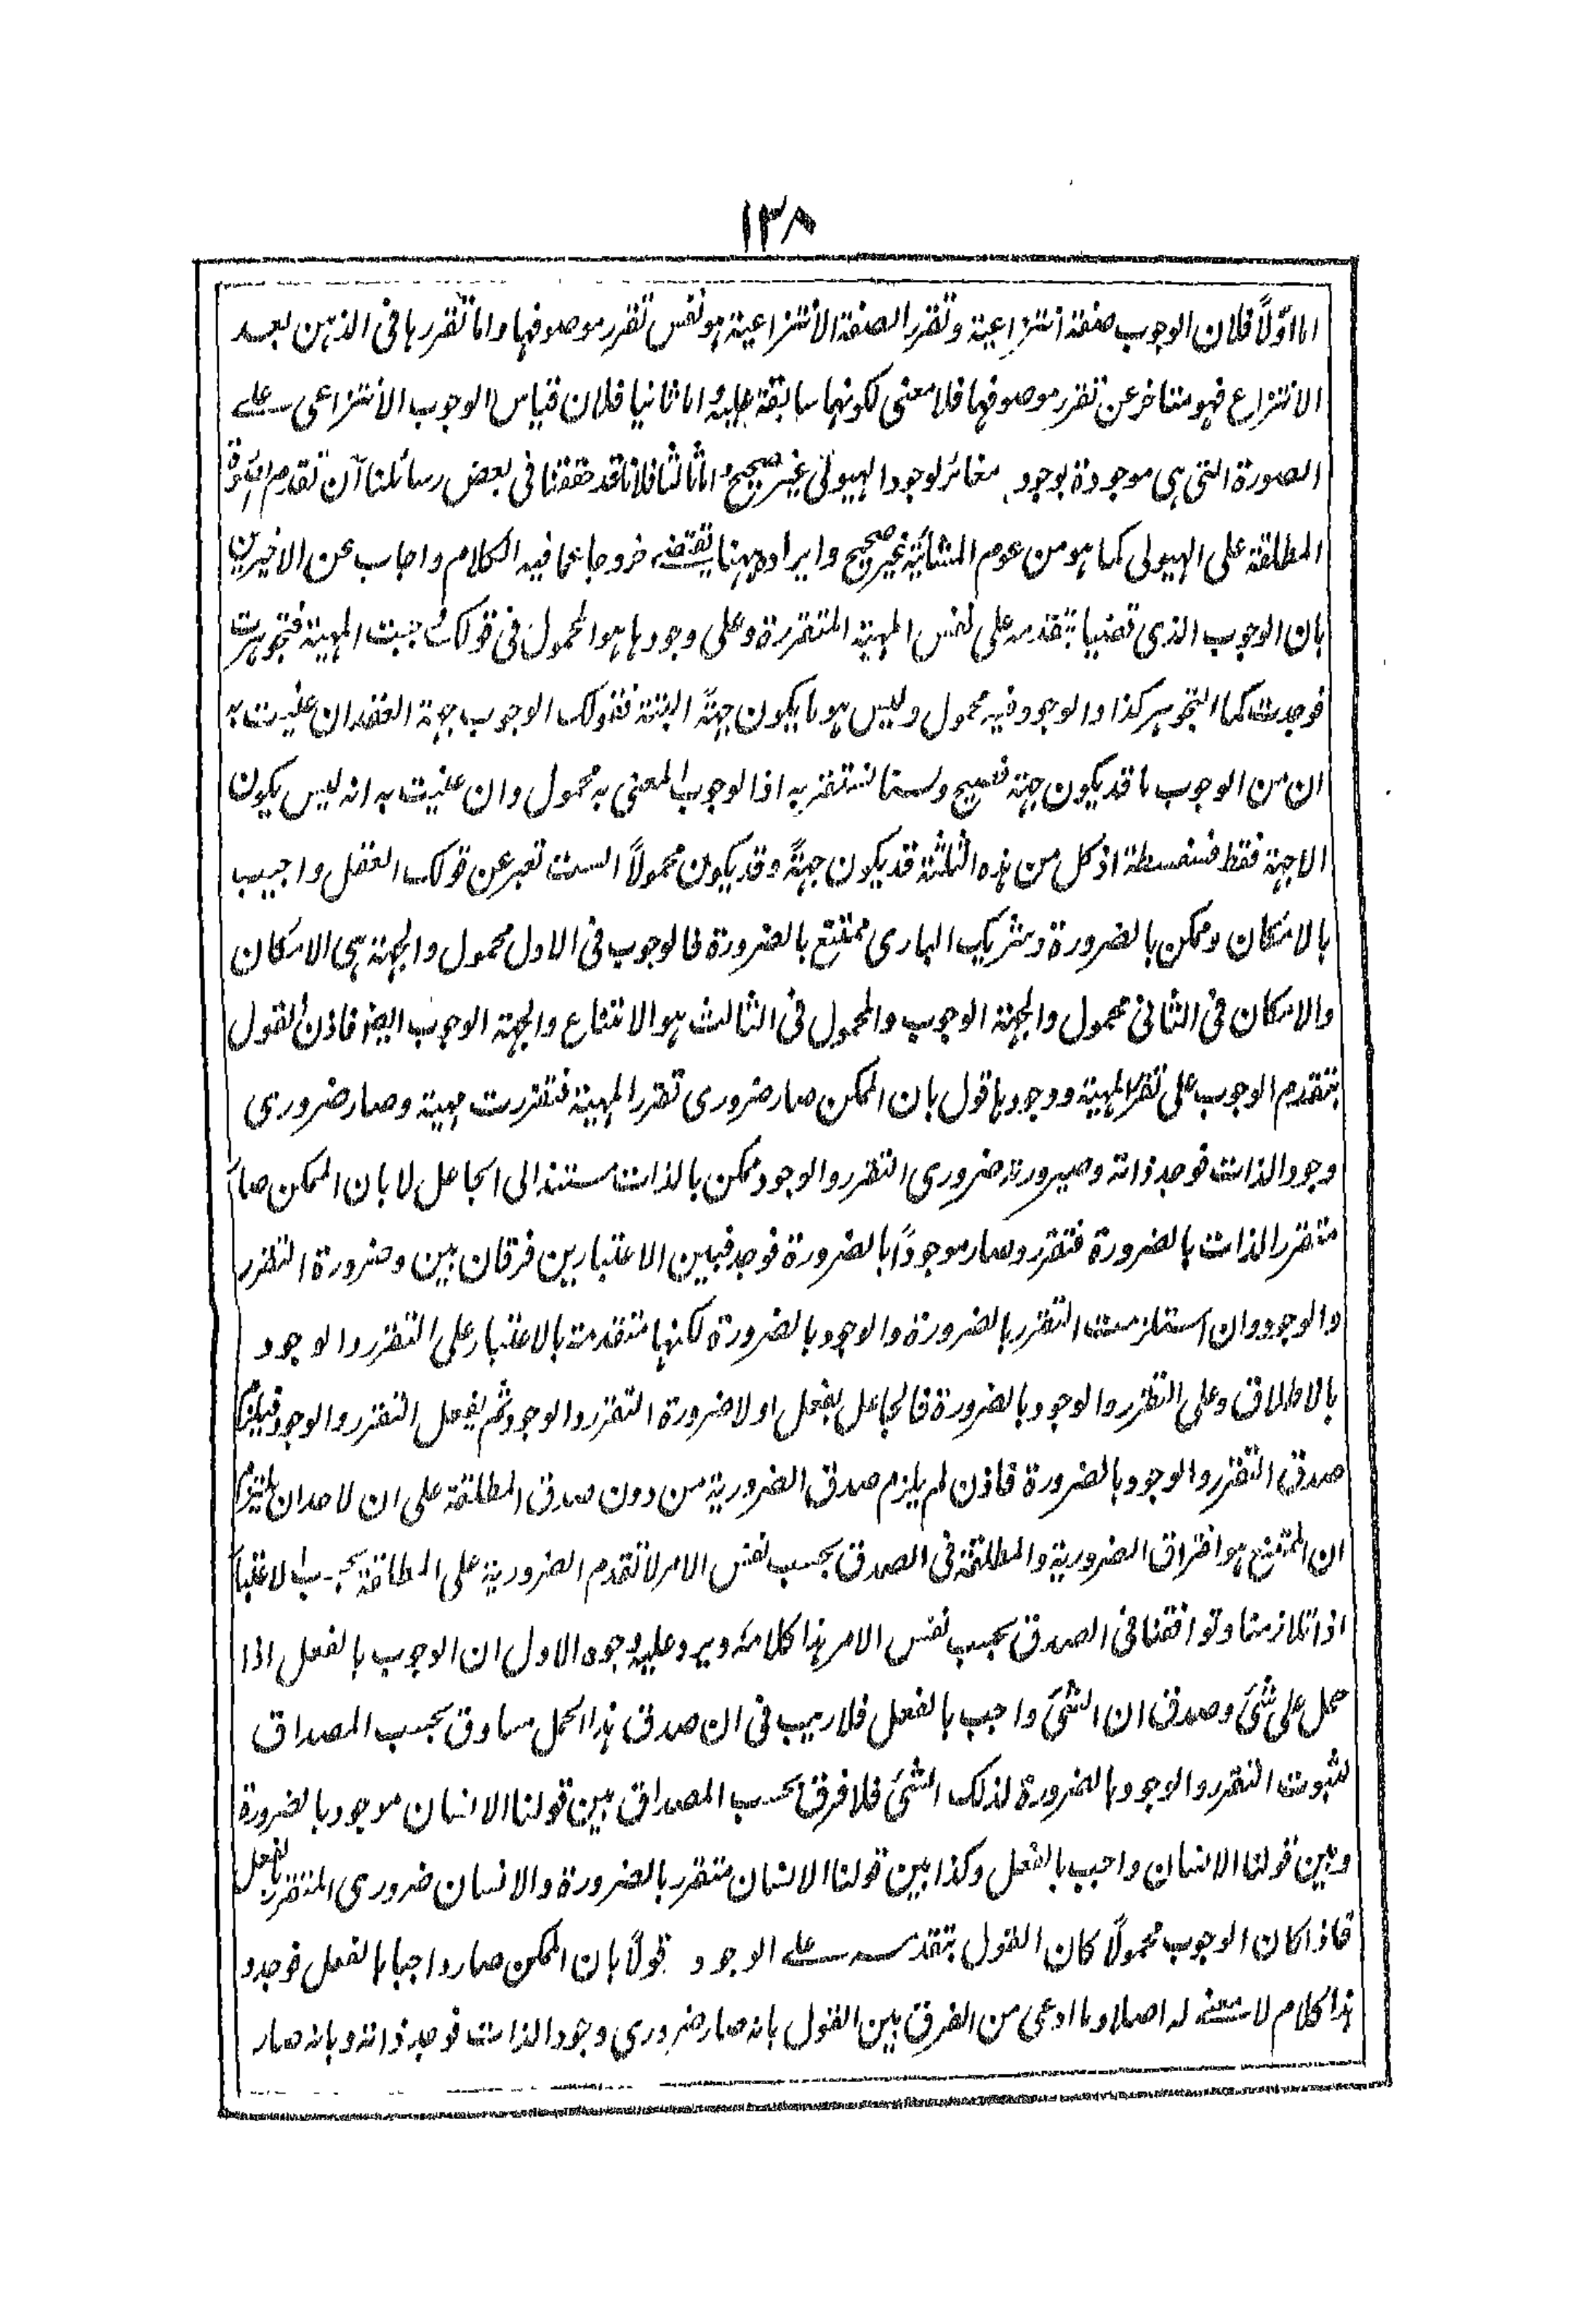 ١٣٨
اما اوّلاً فلان الوجوب صفة انتزاعية وتقرر الصفة الانتزاعية هو نفس تقرر موصوفها واما تقررها فى الذهن بعد
الانتزاع فهو متاخر عن تقرر موصوفها فلا معنى لكونها سابقة عليه واما ثانيا فلان قياس الوجوب الانتزاعى على
الصورة التى هى موجودة بوجود مغائر لوجود الهيولى غير صحيح واما ثالثا فلانا قد حققنا فى بعض رسائلنا ان تقدم الصورة
المطلقة على الهيولى كما هو من عوم المشائية غير صحيح وايراده ههنا يقتضى خروجا عما فيه الكلام واجاب عن الاخيرين
بان الوجوب الذى قضينا بتقدمه على نفس المهية المتقررة وعلى وجودها هو المحمول فى قولك وجبت المهية فتجوهرت
فوجدت كما التجوهر كذا والوجود فيه محمول وليس هو ما يكون جهةً البتة فقولك الوجوب جهة العقد ان عنيت به
ان من الوجوب ما قد يكون جهة فصحيح ولسنا نستضر به اذ الوجوب المعنى به محمول وان عنيت به انه ليس يكون
الا جهة فقط فسفسطة اذ كل من هذه الثلثة قد يكون جهةً وقد يكون محمولاً الست تعبر عن قولك العقل واجب
بالامكان وممكن بالضرورة وشريك البارى ممتنع بالضرورة فالوجوب فى الاول محمول والجهة هى الامكان
والامكان فى الثانى محمول والجهة الوجوب والمحمول فى الثالث هو الامتناع والجهة الوجوب ايضا فاذن القول
بتقدم الوجوب على تقرر المهية ووجودها قول بان الممكن صار ضرورى تقرر المهية فتقررت مهية وصار ضرورى
وجود الذات فوجد ذاته وصيرورته ضرورى التقرر والوجود ممكن بالذات مستند الى الجاعل لا بان الممكن صار
متقرر الذات بالضرورة فتقرر وصار موجوداً بالضرورة فوجد فبين الاعتبارين فرقان بين وضرورة التقرر
والوجود وان استلزمت التقرر بالضرورة والوجود بالضرورة لكنها متقدمة بالاعتبار على التقرر والوجود
بالاطلاق وعلى التقرر والوجود بالضرورة فالجاعل يفعل اولا ضرورة التقرر والوجود ثم يفعل التقرر والوجود فيلزم
صدق التقرر والوجود بالضرورة فاذن لم يلزم صدق الضرورية من دون صدق المطلقة على ان لاحد ان يلتزم
ان الممتنع هو افتراق الضرورية والمطلقة فى الصدق بحسب نفس الامر لا تقدم الضرورية على المطلقة بحسب الاعتبار
اذا تلازمتا وتوافقتا فى الصدق بحسب نفس الامر هذا كلامه ويرد عليه وجوه الاول ان الوجوب بالفعل اذا
حمل على شئ وصدق ان الشئ واجب بالفعل فلا ريب فى ان صدق هذا الحمل مساوق بحسب المصداق
لثبوت التقرر والوجود بالضرورة لذلك الشئ فلا فرق بحسب المصداق بين قولنا الانسان موجود بالضرورة
وبين قولنا الانسان واجب بالفعل وكذا بين قولنا الانسان متقرر بالضرورة والانسان ضرورى التقرر بالفعل
فاذا كان الوجوب محمولاً كان القول بتقدمه على الوجود قولاً بان الممكن صار واجبا بالفعل فوجد و
هذا كلام لا معنى له اصلا وما ادعى من الفرق بين القول بانه صار ضرورى وجود الذات فوجد ذاته وبانه صار